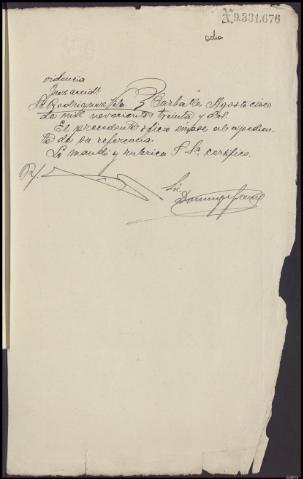 N.9.331.676
ocho
videncia
Juez accidl
Sr Rodriguez Carballo Agosto cinco
de mil novecientos treinta y dos.
El precedente oficio unase al expedien-
te de su referencia.
Lo mandó y rubrica S Sa certifico.